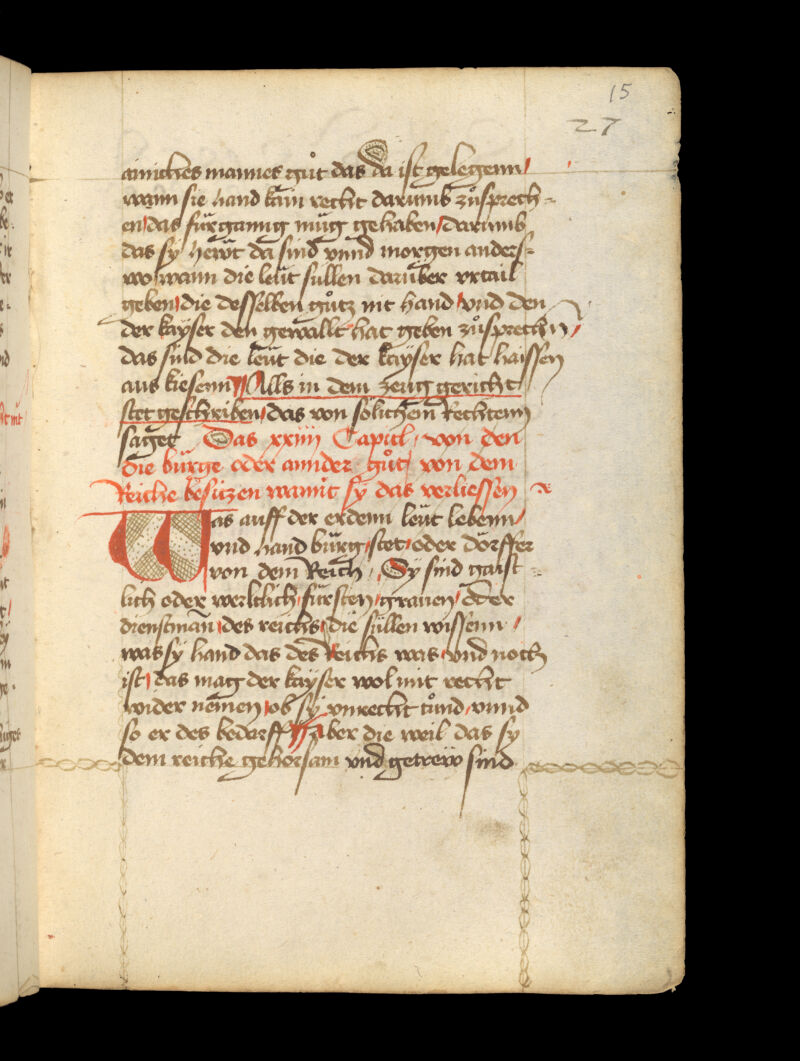 15
27
ainiches mannes gůt das da ist gelegenn /
wann sie hand kain recht darumb zůsprech-
en / das fürganng müg gehaben / darumb
das sy hewt da sind vnnd morgen anders-
wo / wann die leüt süllen darüber vrtail
geben / die desselben gůtz nit hand / vnd den
der kayser den gewallt hat geben zůsprechn /
das sind die leüt die der kayser hat haissen
aus kiesenn / Alls in dem zeug gericht
stet geschriben / das von sölichem Rechtenn
saget Das xxiiii Capitl / von den
die bürge oder annder gůt von dem
Reiche besitzen wamit sy das verliessen
Was auff der erdenn leüt lebenn /
vnd hand bürg / stet / oder dörffer
von dem Reich / Sy sind gaist-
lich oder werltlich / fürsten / grauen / oder
dienstman / des reichs / die süllen wissenn /
was sy hand das des Reichs was / vnd noch
ist / das mag der kayser wol mit recht
wider nemen / ob sy vnrecht tůnd / vnnd
so er des bedarff / Aber die weil das sy
dem reiche gehorsam vnd getrew sind